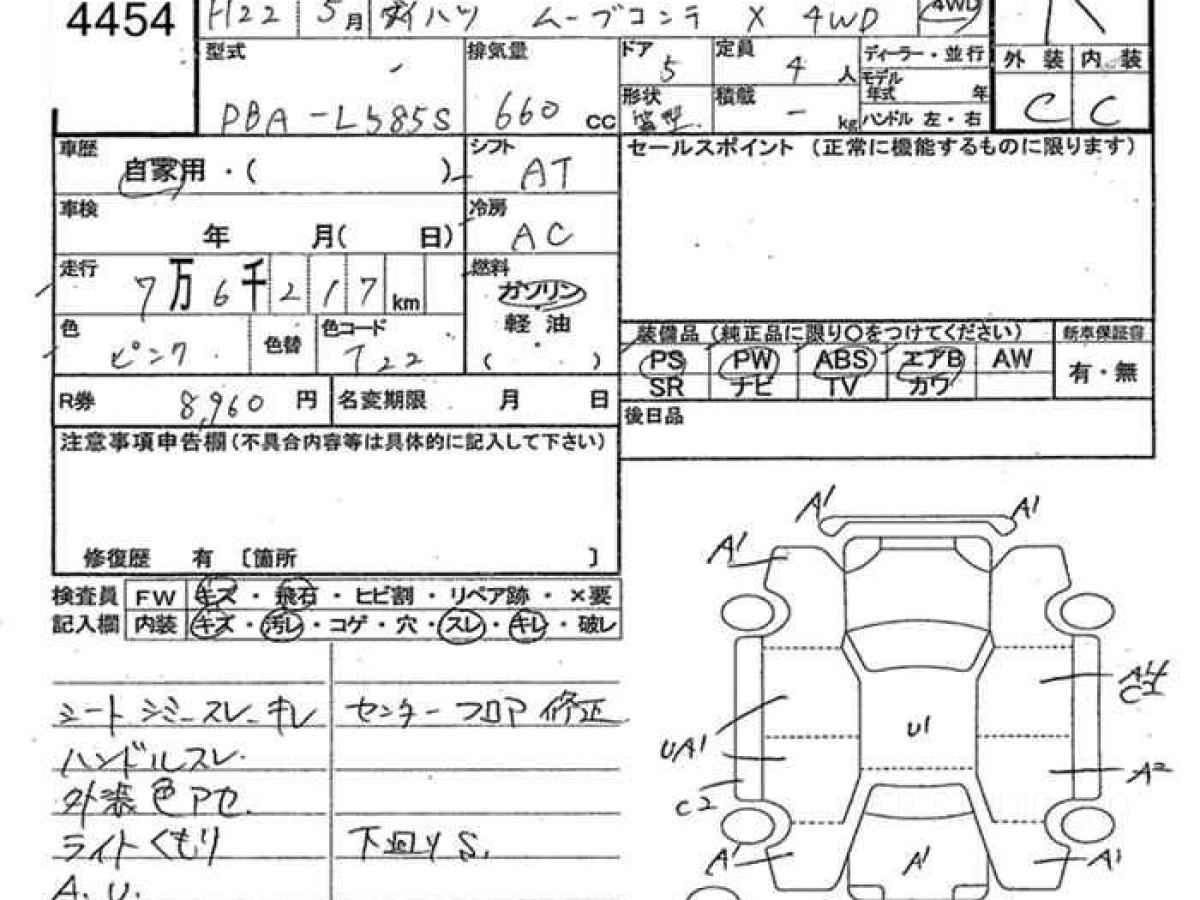 4454 H22 5月 ダイハツ ムーブコンテ X 4WD 4WD
型式 排気量 ドア 5 定員 4人 ディーラー・並行 外装 内装
DBA-L585S 660 cc 形状 箱型 積載 - kg モデル年式 年 C C
ハンドル 左・右
車歴 自家用・( ) シフト AT セールスポイント (正常に機能するものに限ります)
車検 年 月( 日) 冷房 AC
走行 7万6千217km 燃料 ガソリン
軽油
( ・ )
色 ピンク 色替 色コード T22
装備品 (純正品に限り○をつけてください) 新車保証書
PS PW ABS エアB AW 有・無
SR ナビ TV カワ
R券 8,960円 名変期限 月 日 後日品
注意事項申告欄(不具合内容等は具体的に記入して下さい)
修復歴 有 〔箇所 〕
検査員 FW キズ・飛石・ヒビ割・リペア跡・×要
記入欄 内装 キズ・汚レ・コゲ・穴・スレ・キレ・破レ
シート シミースレーキレ センターフロア修正
ハンドルスレ.
外装色アセ.
ライトくもり 下廻りS.
A. U.
A1 A1
A1
A4
C2
U1
UA1 A2
C2
A1 A1 A1